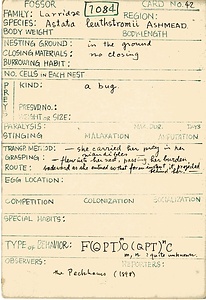 FOSSOR CARD NO. 42
FAMILY: Larridae 7084 REGION:
SPECIES: Astata leuthstromii ASHMEAD.
BODY WEIGHT BODY LENGTH
NESTING GROUND: in the ground
CLOSING MATERIALS: no closing
BURROWING HABIT:
NO. CELLS IN EACH NEST
PREY KIND: a bug.
PRESVD NO.:
WEIGHT OR SIZE:
PARALYSIS FOR DUR. DAYS
STINGING MALAXATION AMPUTATION
TRANSP. METHOD: — she carried her prey in her
mandibles
GRASPING: — flew into her nest, passing her burden
ROUTE: backward as she entered so that for an instant it projected
behind
EGG LOCATION:
COMPETITION COLONIZATION SOCIALIZATION
SPECIAL HABITS:
TYPE OF BEHAVIOR: F(O(PT)^b O(aPT)^m C
m, n : quite unknown.
OBSERVERS: REPORTERS:
the Peckhams (1898)